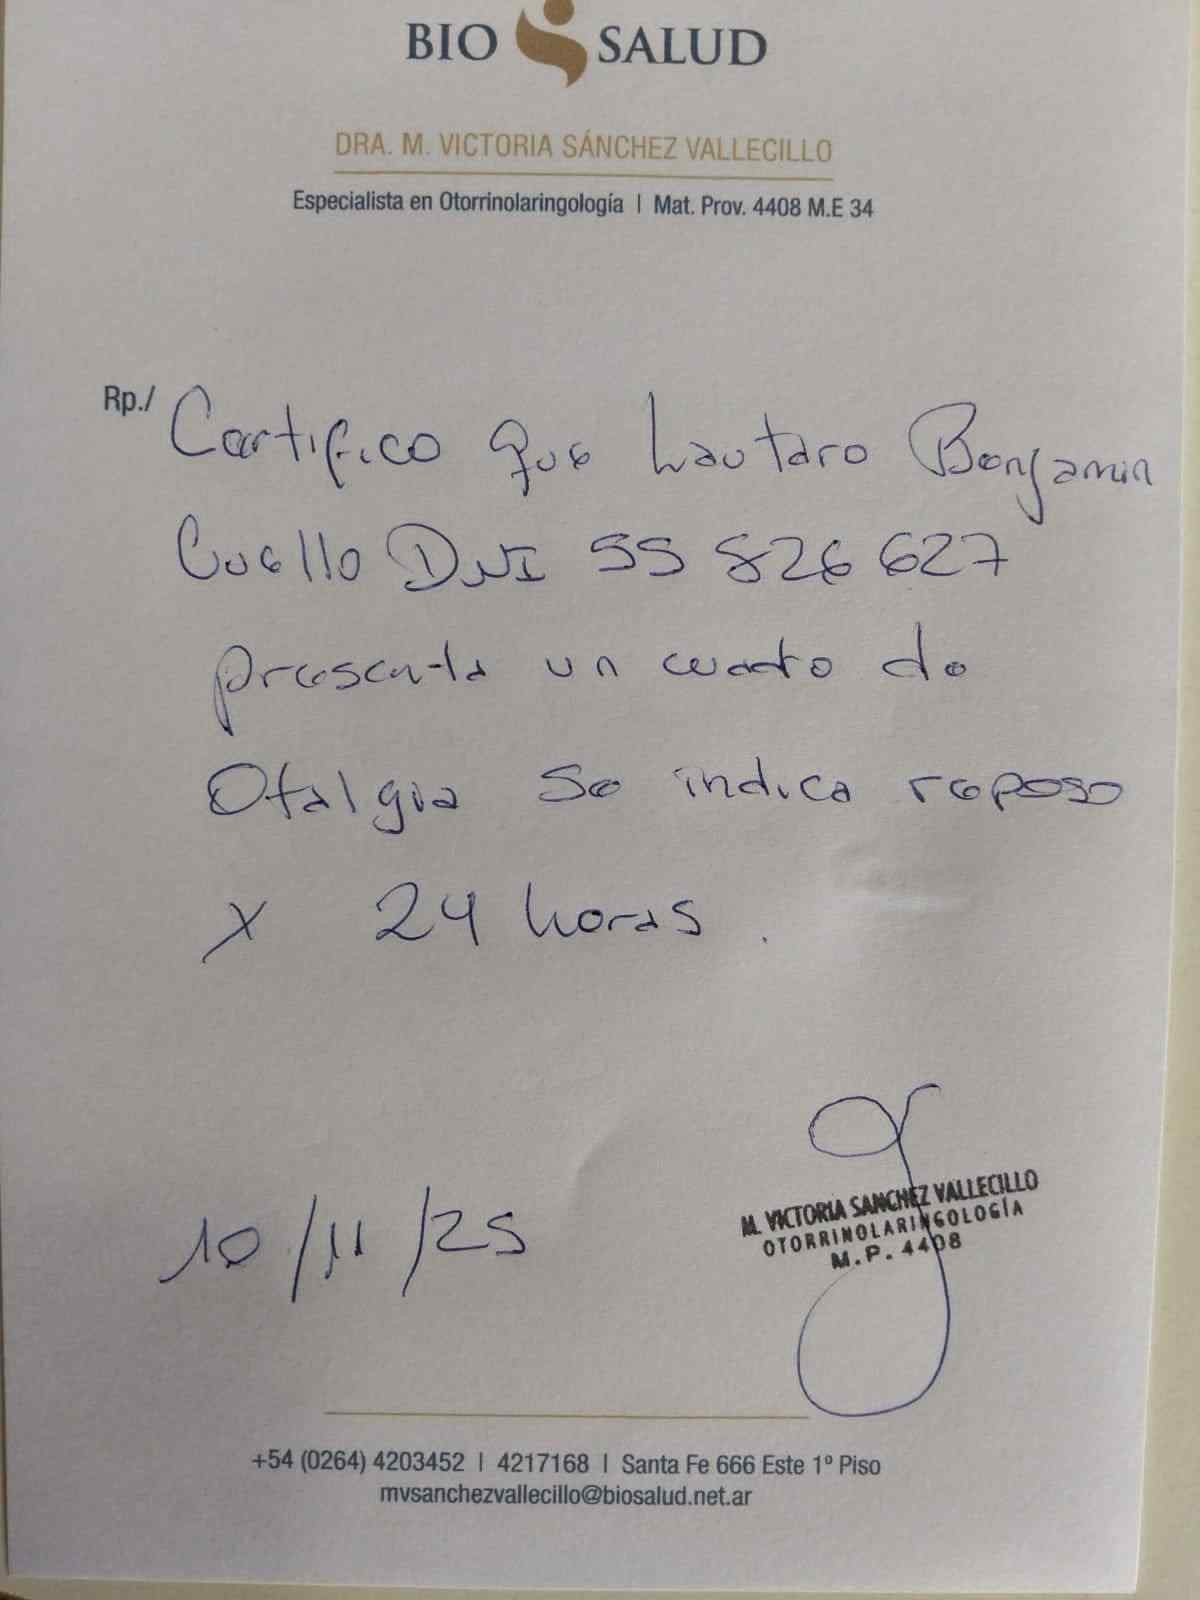 BIO SALUD
DRA. M. VICTORIA SÁNCHEZ VALLECILLO
Especialista en Otorrinolaringología | Mat. Prov. 4408 M.E 34
Rp./ Certifico que Lautaro Benjamin
Cuello DNI 55 826 627
presenta un cuadro de
Otalgia se indica reposo
x 24 horas.
10/11/25
M. VICTORIA SANCHEZ VALLECILLO
OTORRINOLARINGOLOGÍA
M.P. 4408
+54 (0264) 4203452 | 4217168 | Santa Fe 666 Este 1º Piso
mvsanchezvallecillo@biosalud.net.ar